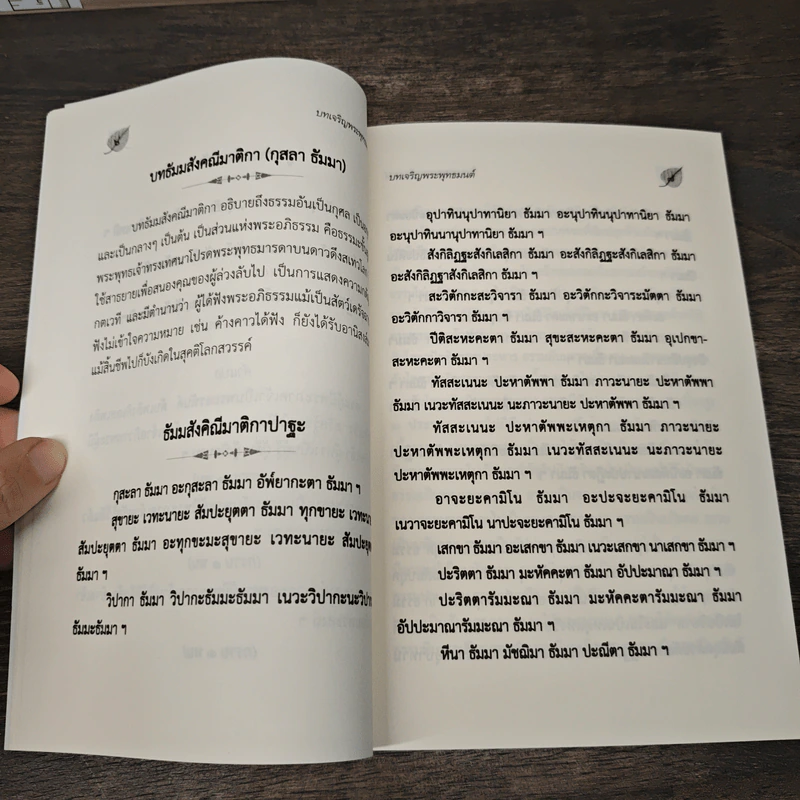 บทเจริญพระพุทธ
บทธัมมสังคณีมาติกา (กุสลา ธัมมา)
บทธัมมสังคณีมาติกา อธิบายถึงธรรมอันเป็นกุศล เป็น
และเป็นกลางๆ เป็นต้น เป็นส่วนแห่งพระอภิธรรม คือธรรมะชั้น
พระพุทธเจ้าทรงเทศนาโปรดพระพุทธมารดาบนดาวดึงสเทวโลก
ใช้สาธยายเพื่อสนองคุณของผู้ล่วงลับไป เป็นการแสดงความ
กตเวที และมีตำนานว่า ผู้ได้ฟังพระอภิธรรมแม้เป็นสัตว์เดรัจ
ฟังไม่เข้าใจความหมาย เช่น ค้างคาวได้ฟัง ก็ยังได้รับอานิสงส์
แม้สิ้นชีพไปก็บังเกิดในสุคติโลกสวรรค์
ธัมมสังคิณีมาติกาปาฐะ
กุสะลา ธัมมา อะกุสะลา ธัมมา อัพ๎ยากะตา ธัมมา ฯ
สุขายะ เวทะนายะ สัมปะยุตตา ธัมมา ทุกขายะ เวทะนา
สัมปะยุตตา ธัมมา อะทุกขะมะสุขายะ เวทะนายะ สัมปะยุต
ธัมมา ฯ
วิปากา ธัมมา วิปากะธัมมะธัมมา เนวะวิปากะนะวิปา
ธัมมะธัมมา ฯ
บทเจริญพระพุทธมนต์
อุปาทินนุปาทานิยา ธัมมา อะนุปาทินนุปาทานิยา ธัมมา
อะนุปาทินนานุปาทานิยา ธัมมา ฯ
สังกิลิฏฐะสังกิเลสิกา ธัมมา อะสังกิลิฏฐะสังกิเลสิกา ธัมมา
อะสังกิลิฏฐาสังกิเลสิกา ธัมมา ฯ
สะวิตักกะสะวิจารา ธัมมา อะวิตักกะวิจาระมัตตา ธัมมา
อะวิตักกาวิจารา ธัมมา ฯ
ปีติสะหะคะตา ธัมมา สุขะสะหะคะตา ธัมมา อุเปกขา-
สะหะคะตา ธัมมา ฯ
ทัสสะเนนะ ปะหาตัพพา ธัมมา ภาวะนายะ ปะหาตัพพา
ธัมมา เนวะทัสสะเนนะ นะภาวะนายะ ปะหาตัพพา ธัมมา ฯ
ทัสสะเนนะ ปะหาตัพพะเหตุกา ธัมมา ภาวะนายะ
ปะหาตัพพะเหตุกา ธัมมา เนวะทัสสะเนนะ นะภาวะนายะ
ปะหาตัพพะเหตุกา ธัมมา ฯ
อาจะยะคามิโน ธัมมา อะปะจะยะคามิโน ธัมมา
เนวาจะยะคามิโน นาปะจะยะคามิโน ธัมมา ฯ
เสกขา ธัมมา อะเสกขา ธัมมา เนวะเสกขา นาเสกขา ธัมมา ฯ
ปะริตตา ธัมมา มะหัคคะตา ธัมมา อัปปะมาณา ธัมมา ฯ
ปะริตตารัมมะณา ธัมมา มะหัคคะตารัมมะณา ธัมมา
อัปปะมาณารัมมะณา ธัมมา ฯ
หีนา ธัมมา มัชฌิมา ธัมมา ปะณีตา ธัมมา ฯ